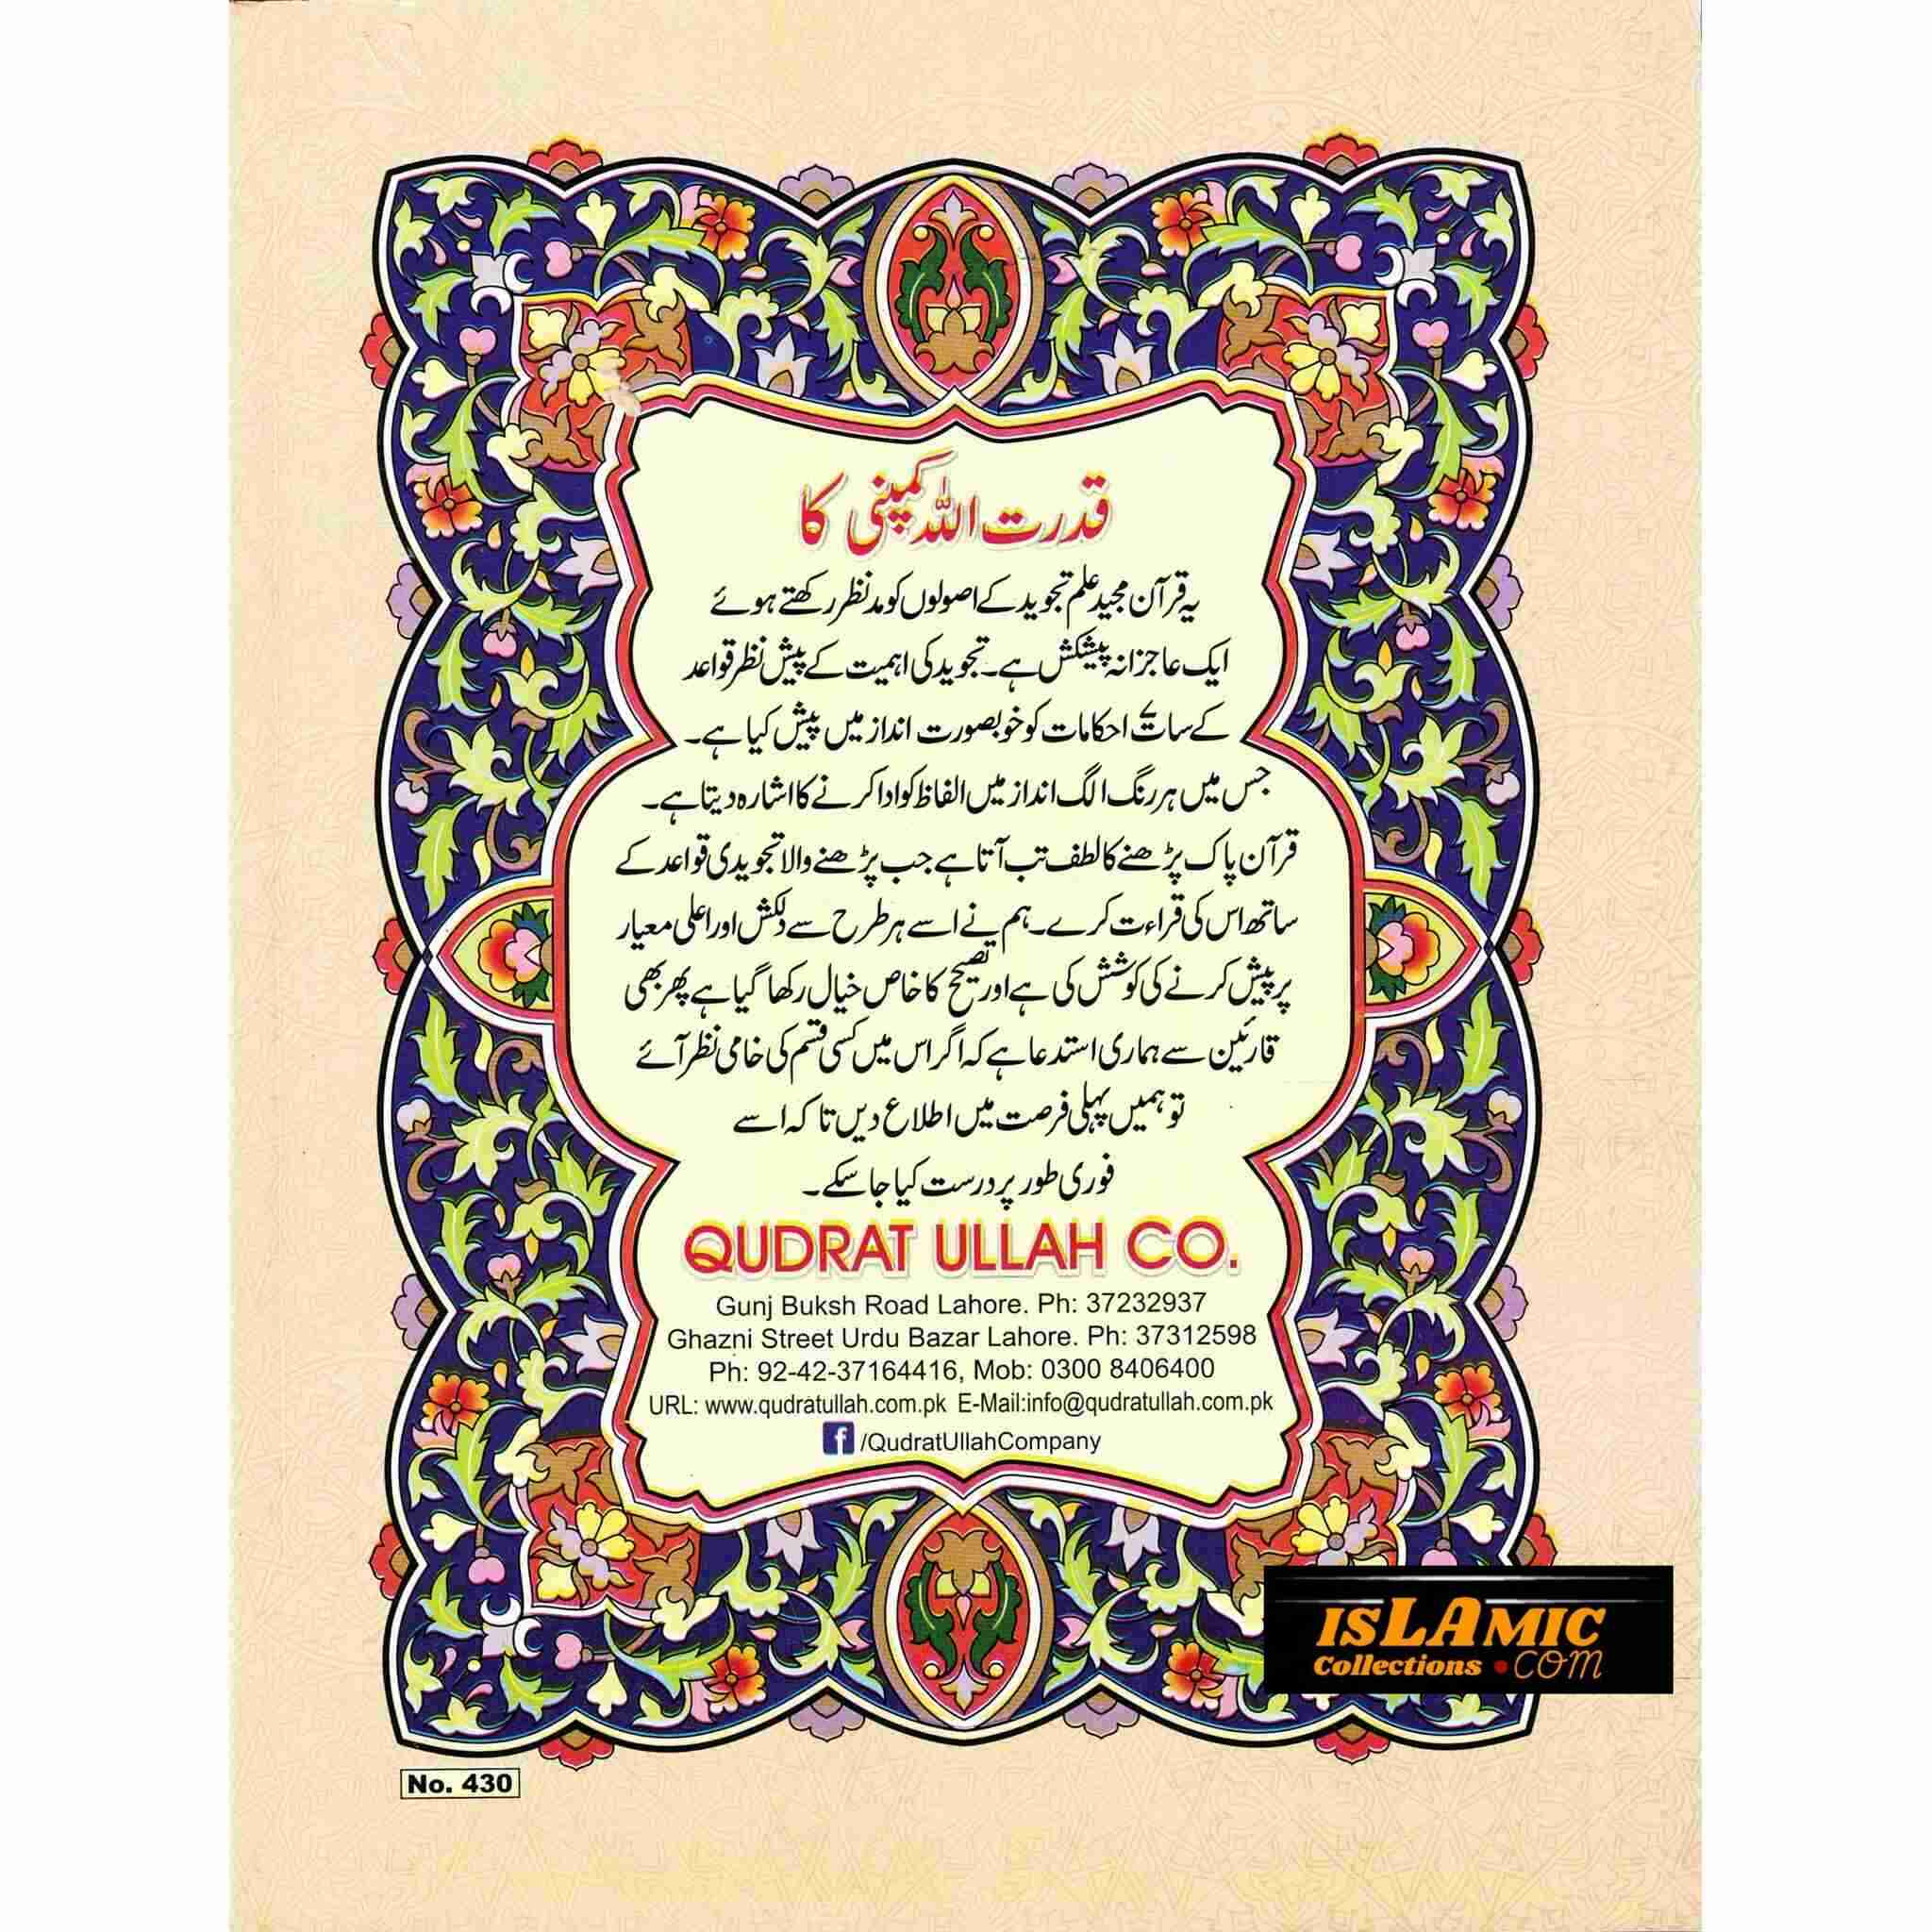 قدرت اللہ کمپنی کا
یہ قرآن مجید علم تجوید کے اصولوں کو مدنظر رکھتے ہوئے
ایک عاجزانہ پیشکش ہے۔ تجوید کی اہمیت کے پیش نظر قواعد
کے سات احکامات کو خوبصورت انداز میں پیش کیا ہے۔
جس میں ہر رنگ الگ انداز میں الفاظ کو ادا کرنے کا اشارہ دیتا ہے۔
قرآن پاک پڑھنے کا لطف تب آتا ہے جب پڑھنے والا تجویدی قواعد کے
ساتھ اس کی قراءت کرے۔ ہم نے اسے ہر طرح سے دلکش اور اعلی معیار
پر پیش کرنے کی کوشش کی ہے اور تصحیح کا خاص خیال رکھا گیا ہے پھر بھی
قارئین سے ہماری استدعا ہے کہ اگر اس میں کسی قسم کی خامی نظر آئے
تو ہمیں پہلی فرصت میں اطلاع دیں تا کہ اسے
فوری طور پر درست کیا جا سکے۔
QUDRAT ULLAH CO.
Gunj Buksh Road Lahore. Ph: 37232937
Ghazni Street Urdu Bazar Lahore. Ph: 37312598
Ph: 92-42-37164416, Mob: 0300 8406400
URL: www.qudratullah.com.pk E-Mail:info@qudratullah.com.pk
f /QudratUllahCompany
ISLAMIC
Collections .com
No. 430